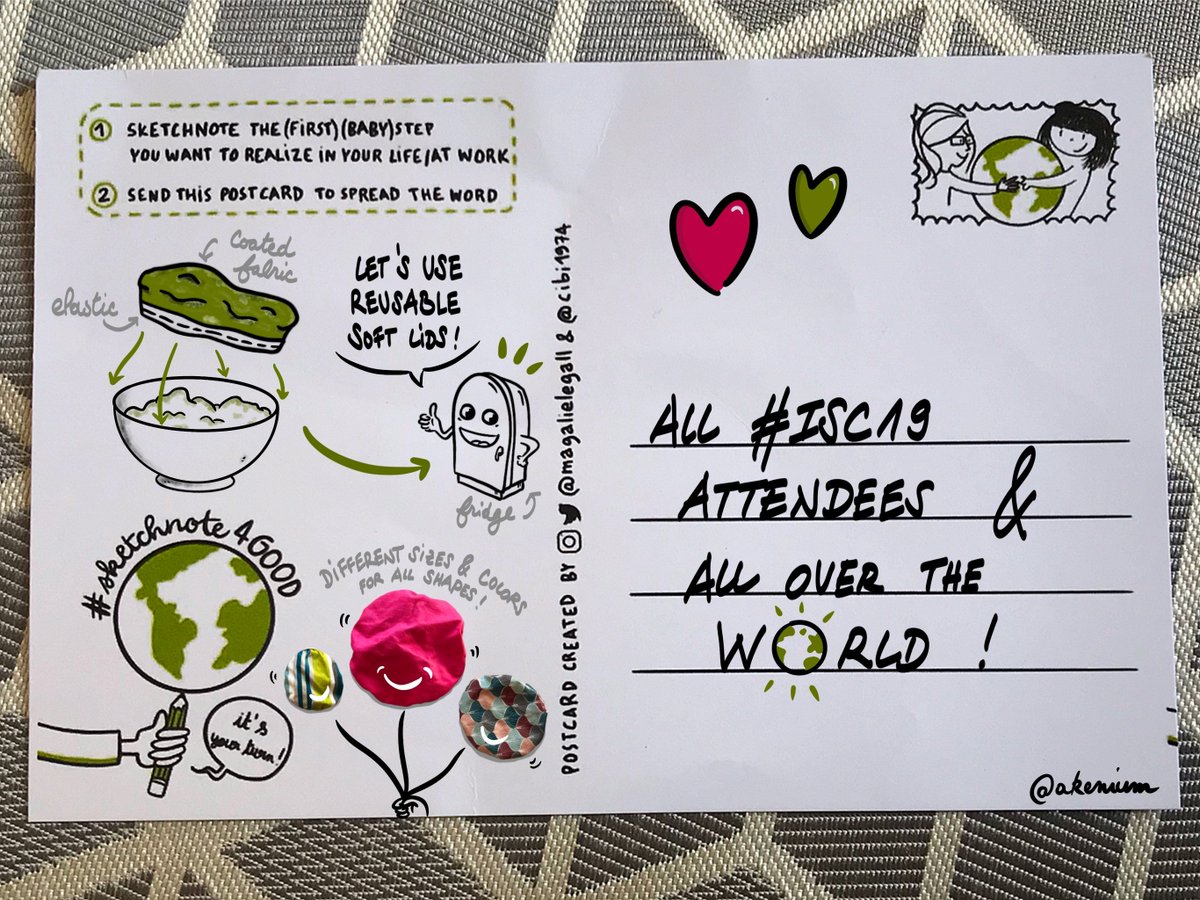 1 SKETCHNOTE THE (FIRST) (BABY) STEP
YOU WANT TO REALIZE IN YOUR LIFE/AT WORK
2 SEND THIS POSTCARD TO SPREAD THE WORD
coated
fabric
elastic
LET'S USE
REUSABLE
SOFT LIDS!
fridge
#sketchnote4GOOD
it's
your turn!
DIFFERENT SIZES & COLORS
FOR ALL SHAPES!
POSTCARD CREATED BY @magalielegall & @cibi1974
ALL #ISC19
ATTENDEES &
ALL OVER THE
WORLD !
@akenium